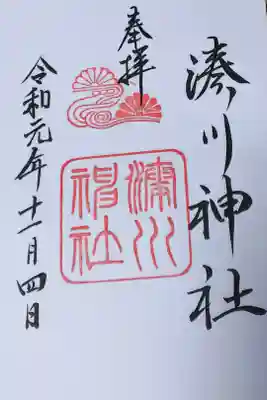 湊川神社
奉拝
湊川
神社
令和元年十一月四日